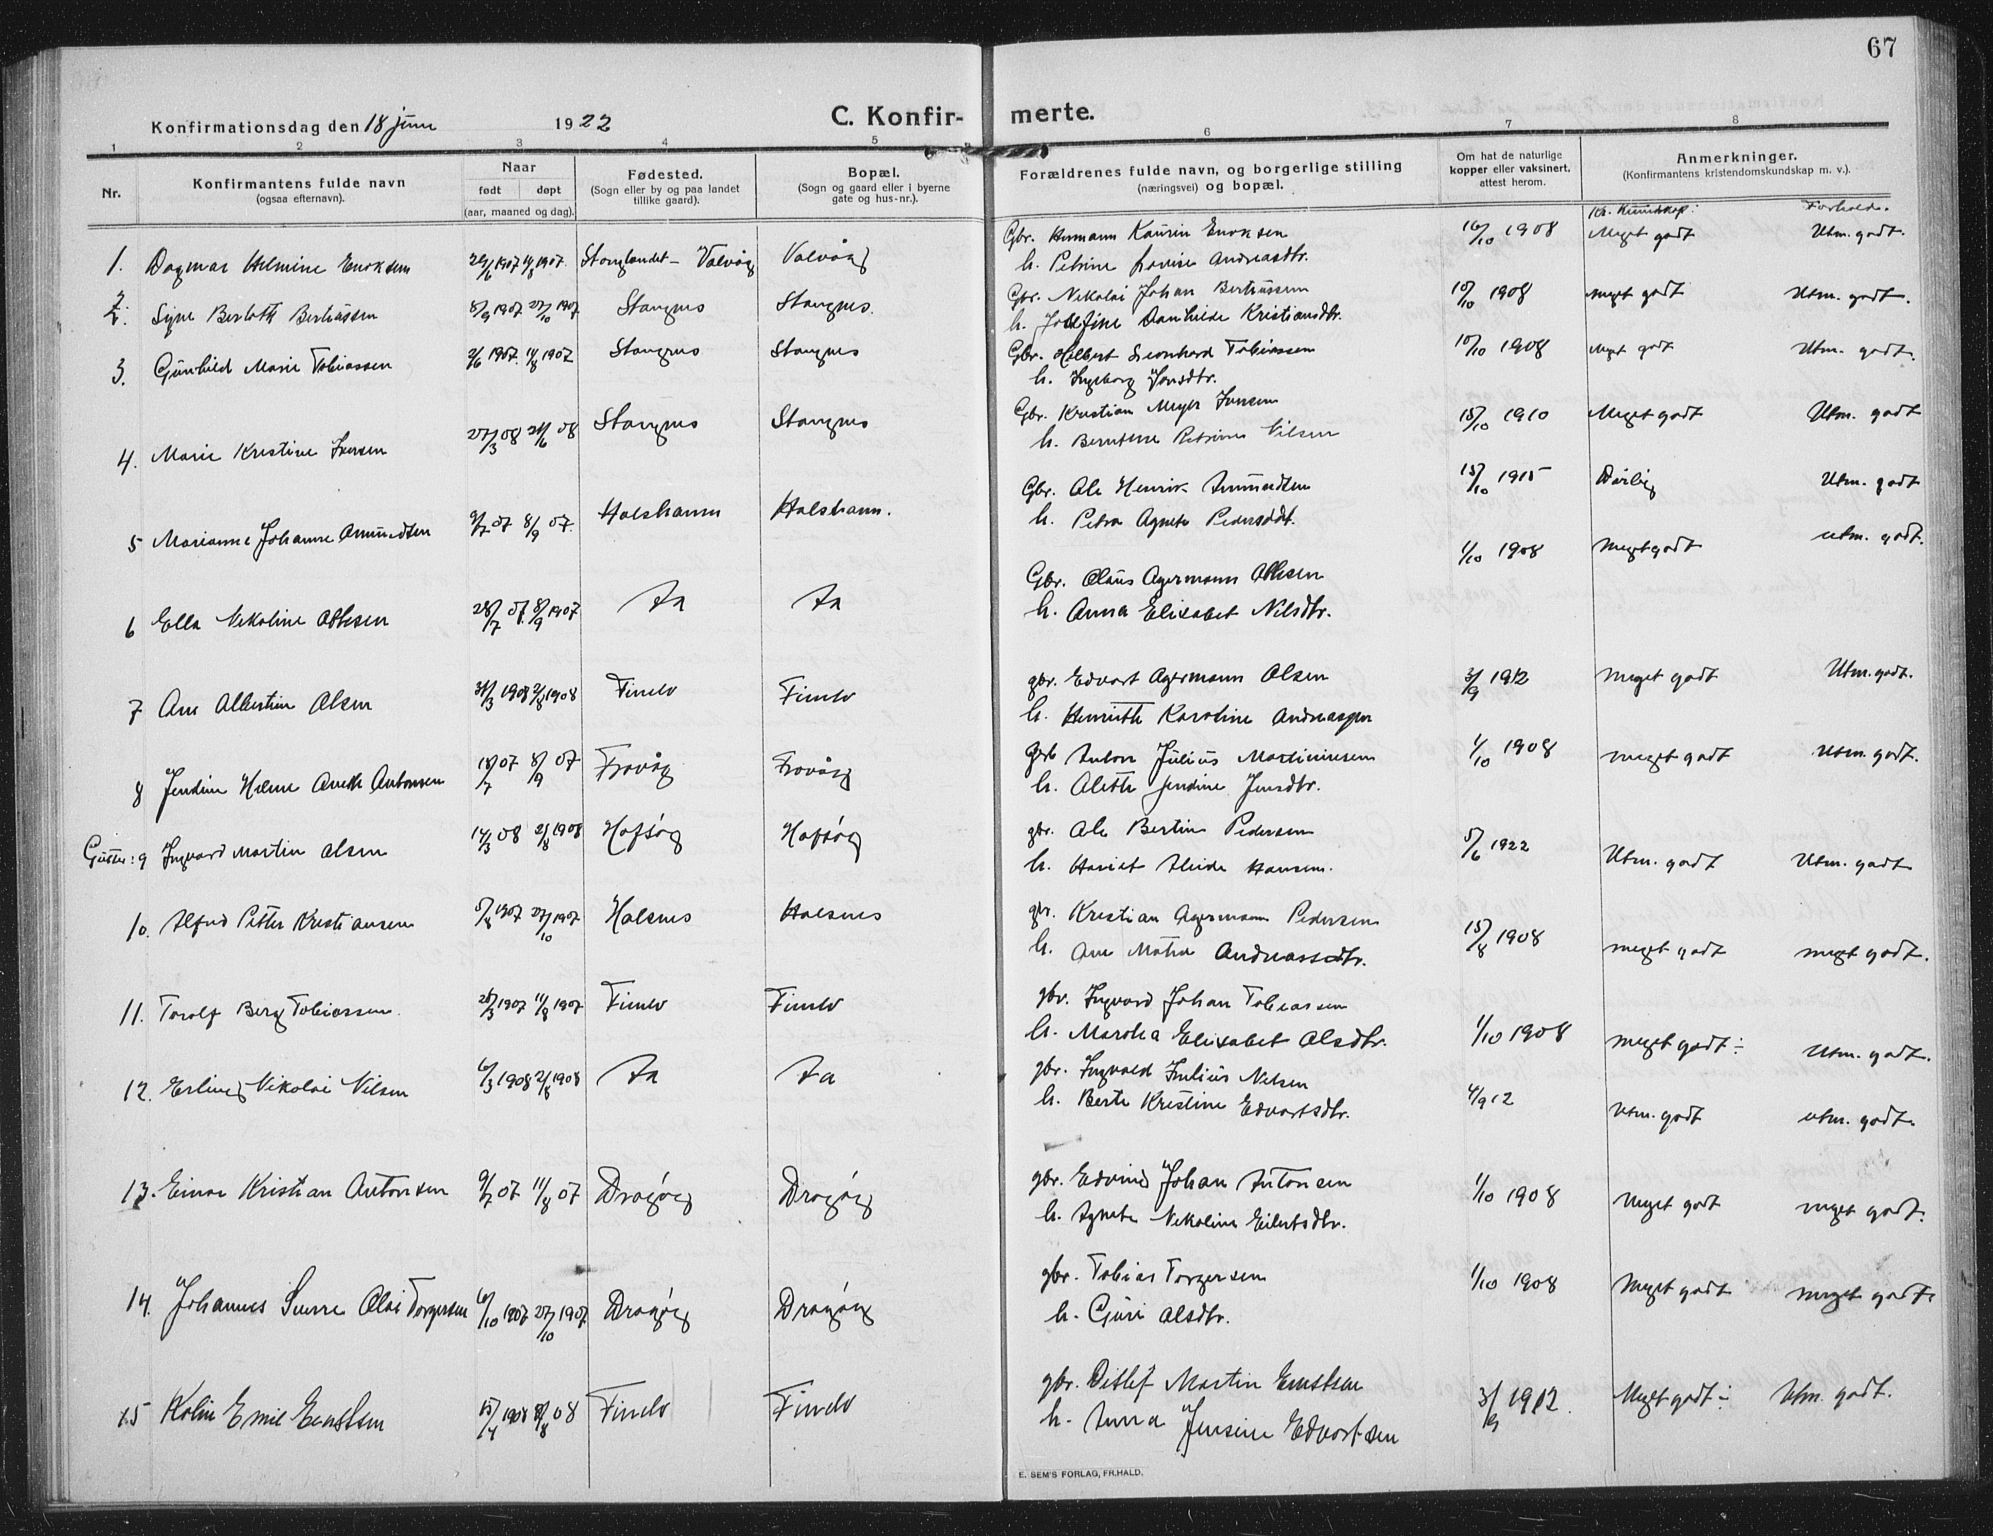 67
Konfirmationsdag den 18 juni 1922
C. Konfir-merte.
1 2 3 4 5 6 7 8
Nr.
Konfirmantens fulde navn
(ogsaa efternavn).
Naar
født døpt
(aar, maaned og dag).
Fødested.
(Sogn eller by og paa landet
tillike gaard).
Bopæl.
(Sogn og gaard eller i byerne
gate og hus-nr.).
Forældrenes fulde navn, og borgerlige stilling
(næringsvei) og bopæl.
Om hat de naturlige
kopper eller vaksinert,
attest herom.
Anmerkninger.
(Konfirmantens kristendomskundskap m. v.).
Kr. Kundskap: Forhold.
1. Dagmar Helmine Enoksen 1907 11/8 1907. Stonglandet - Valvåg Valvåg Gbr. Hermann Kaurin Enoksen 16/10 1908 Meget godt Utm. godt.
h. Petrine Lovise Andreasdtr.
2. Signe Berlott Berteussen 8/9 1907 27/10 1907 Stangnes Stangnes. Gbr. Nikolai Johan Berteussen 10/10 1908 meget godt Utm. godt.
h. Josefine Danhilde Kristiansdtr.
3. Gunhild Marie Tobiassen 2/6 1907. 11/8 1907 Stangnes Stangnes Gbr. Hilbert Leonhard Tobiassen 10/10 1908 meget godt Utm. godt.
h. Ingeborg Jonsdtr.
4. Marie Kristine Iversen 27/3 08 21/6 08 Stangnes Stangnes Gbr. Kristian Meyer Iversen 15/10 1910 Meget godt Utm. godt
h. Berntine Petrine Nilsen
5 Marianne Johanne Amundsen 9/7 07 8/9 07. Halshamn Halshamn. Gbr. Ole Henrik Amundsen 15/10 1915 Dårlig Utm. godt
h. Petra Agnete Pedersdt.
6 Ella Nikoline Ottesen 28/7 07. 8/9 1907. Aa Aa Gbr. Claus Agermann Ottesen 1/10 1908 Meget godt utm. godt.
h. Anna Elisabet Nilsdtr.
7 Ane Albertine Olsen 31/3 1908 2/8 1908 Finele Finele gbr. Edvart Agermann Olsen 3/9 1912 meget godt Utm. godt.
h. Henriette Karoline
8 Jendine Helene Anette Antonsen 18/7 07 8/9 07 Frovåg Frovåg Anton Julius Martinussen 1/10 1908 meget godt Utm. godt.
h. Alette Jendine Jensdtr.
Gutter: 9 Ingvard Martin Olsen 14/3 08 2/8 1908 Hofsøy Hofsøy gbr. Ole Bertin Pedersen 5/6 1922 Utm. godt Utm. godt
h. Hansen.
10. Alfred Petter Kristiansen 1907 27/10 1907 Halsnes Halsnes gbr. Kristian Agermann Pedersen 15/8 1908 meget godt meget godt.
h. Ane Andreassdtr.
11. Torolf Berg Tobiassen. 1907 11/8 1907 Finele Finele gbr. Ingvard Johan Tobiassen 1/10 1908 meget godt ÷ Utm. godt.
h. Martha Elisabet Olsdtr.
12. Erling Nikolai Nilsen 6/3 1908 2/8 1908 Aa Aa gbr. Ingvald Julius Nilsen 4/9 12 utm. godt utm. godt.
h. Berte Kristine Edvartsdtr.
13. Einar Kristian Antonsen 9/7 07 11/8 07 Drogøy Drogøy gbr. Edvind Johan Antonsen 1/10 1908 Meget godt meget godt.
h. Agnete Nikoline Eilertsdtr.
14. Johannes Sverre Olai Torgersen 6/10 1907 27/10 1907 Drogøy Drogøy gbr. Tobias Torgersen 1/10 1908 Meget godt meget godt.
h. Guri Olsdtr.
15 Kolin Emil Ernstsen 15/4 1908 08 Finele Finele gbr. Ditlef Martin Ernstsen 3/9 1912. Meget godt ÷ Utm. godt.
h. Anna Jensine Edvartsen
E. SEM'S FORLAG, FR.HALD.